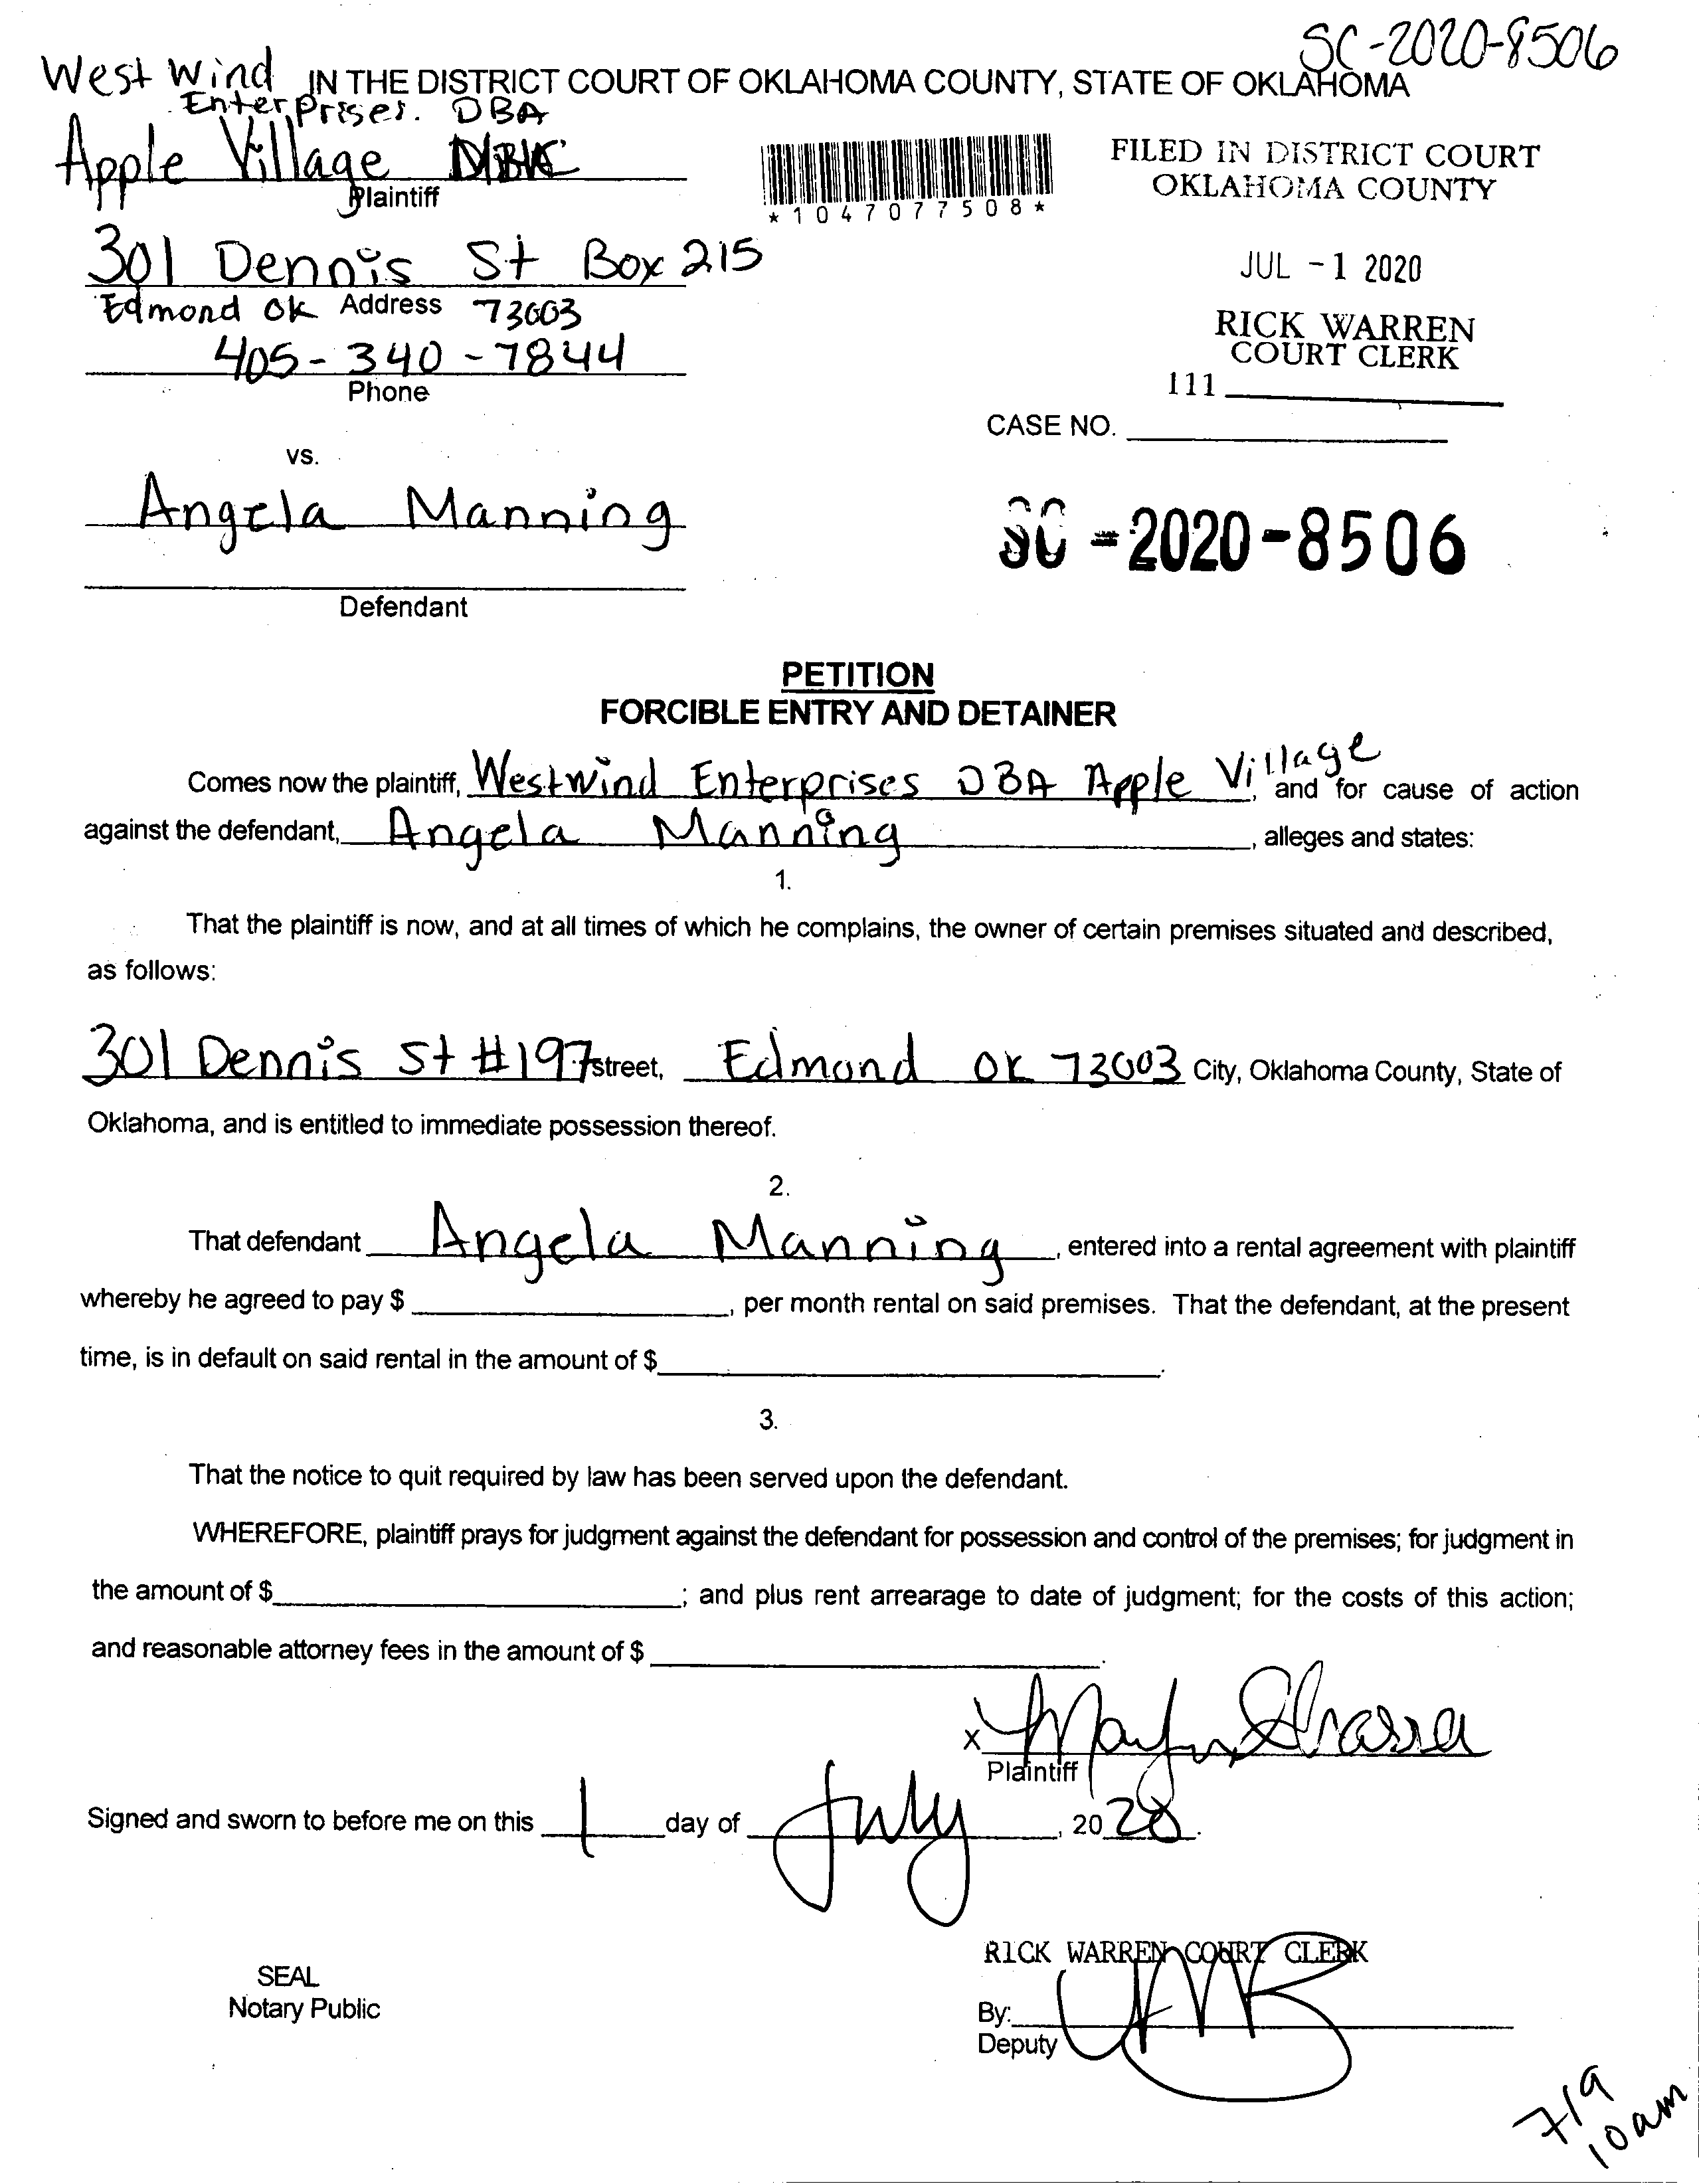 SC-2020-8506
West Wind IN THE DISTRICT COURT OF OKLAHOMA COUNTY, STATE OF OKLAHOMA
Enterprises. DBA
Apple Village
Plaintiff
*1047077508*
FILED IN DISTRICT COURT
OKLAHOMA COUNTY
301 Dennis St Box 215
Edmond OK Address 73003
405-340-7844
Phone
JUL -1 2020
RICK WARREN
COURT CLERK
111
CASE NO.
vs.
Angela Manning
SC-2020-8506
Defendant
PETITION
FORCIBLE ENTRY AND DETAINER
Comes now the plaintiff, Westwind Enterprises DBA Apple Village, and for cause of action
against the defendant, Angela Manning, alleges and states:
1.
That the plaintiff is now, and at all times of which he complains, the owner of certain premises situated and described,
as follows:
301 Dennis St #197 street, Edmond OK 73003 City, Oklahoma County, State of
Oklahoma, and is entitled to immediate possession thereof.
2.
That defendant Angela Manning, entered into a rental agreement with plaintiff
whereby he agreed to pay $, per month rental on said premises. That the defendant, at the present
time, is in default on said rental in the amount of $.
3.
That the notice to quit required by law has been served upon the defendant.
WHEREFORE, plaintiff prays for judgment against the defendant for possession and control of the premises; for judgment in
the amount of $; and plus rent arrearage to date of judgment; for the costs of this action;
and reasonable attorney fees in the amount of $.
X
Plaintiff
Signed and sworn to before me on this 1 day of July, 2020.
RICK WARREN COURT CLERK
SEAL
Notary Public
By:
Deputy
7/9
10am